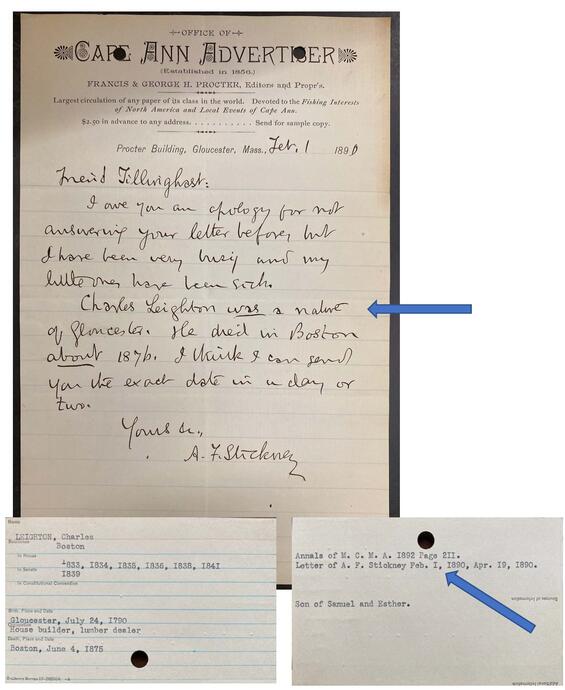 OFFICE OF
CAPE ANN ADVERTISER
(Established in 1856.)
FRANCIS & GEORGE H. PROCTER, Editors and Propr's.
Largest circulation of any paper of its class in the world. Devoted to the Fishing Interests
of North America and Local Events of Cape Ann.
$2.50 in advance to any address. . . . . . . . . . . Send for sample copy.
Procter Building, Gloucester, Mass., Feb. 1 1890
Friend Tillinghast:
I owe you an apology for not
answering your letter before, but
I have been very busy and my
little ones have been sick.
Charles Leighton was a native
of Gloucester. He died in Boston
about 1876. I think I can send
you the exact date in a day or
two.
Yours &c.,
A. F. Stickney
Name
LEIGHTON, Charles
Residence
Boston
In House
1833, 1834, 1835, 1836, 1838, 1841
In Senate
1839
In Constitutional Convention
Birth, Place and Date
Gloucester, July 24, 1790
House builder, lumber dealer
Death, Place and Date
Boston, June 4, 1875
Annals of M. C. M. A. 1892 Page 211.
Letter of A. F. Stickney Feb. I, 1890, Apr. 19, 1890.
Sources of Information
Son of Samuel and Esther.
Additional Information